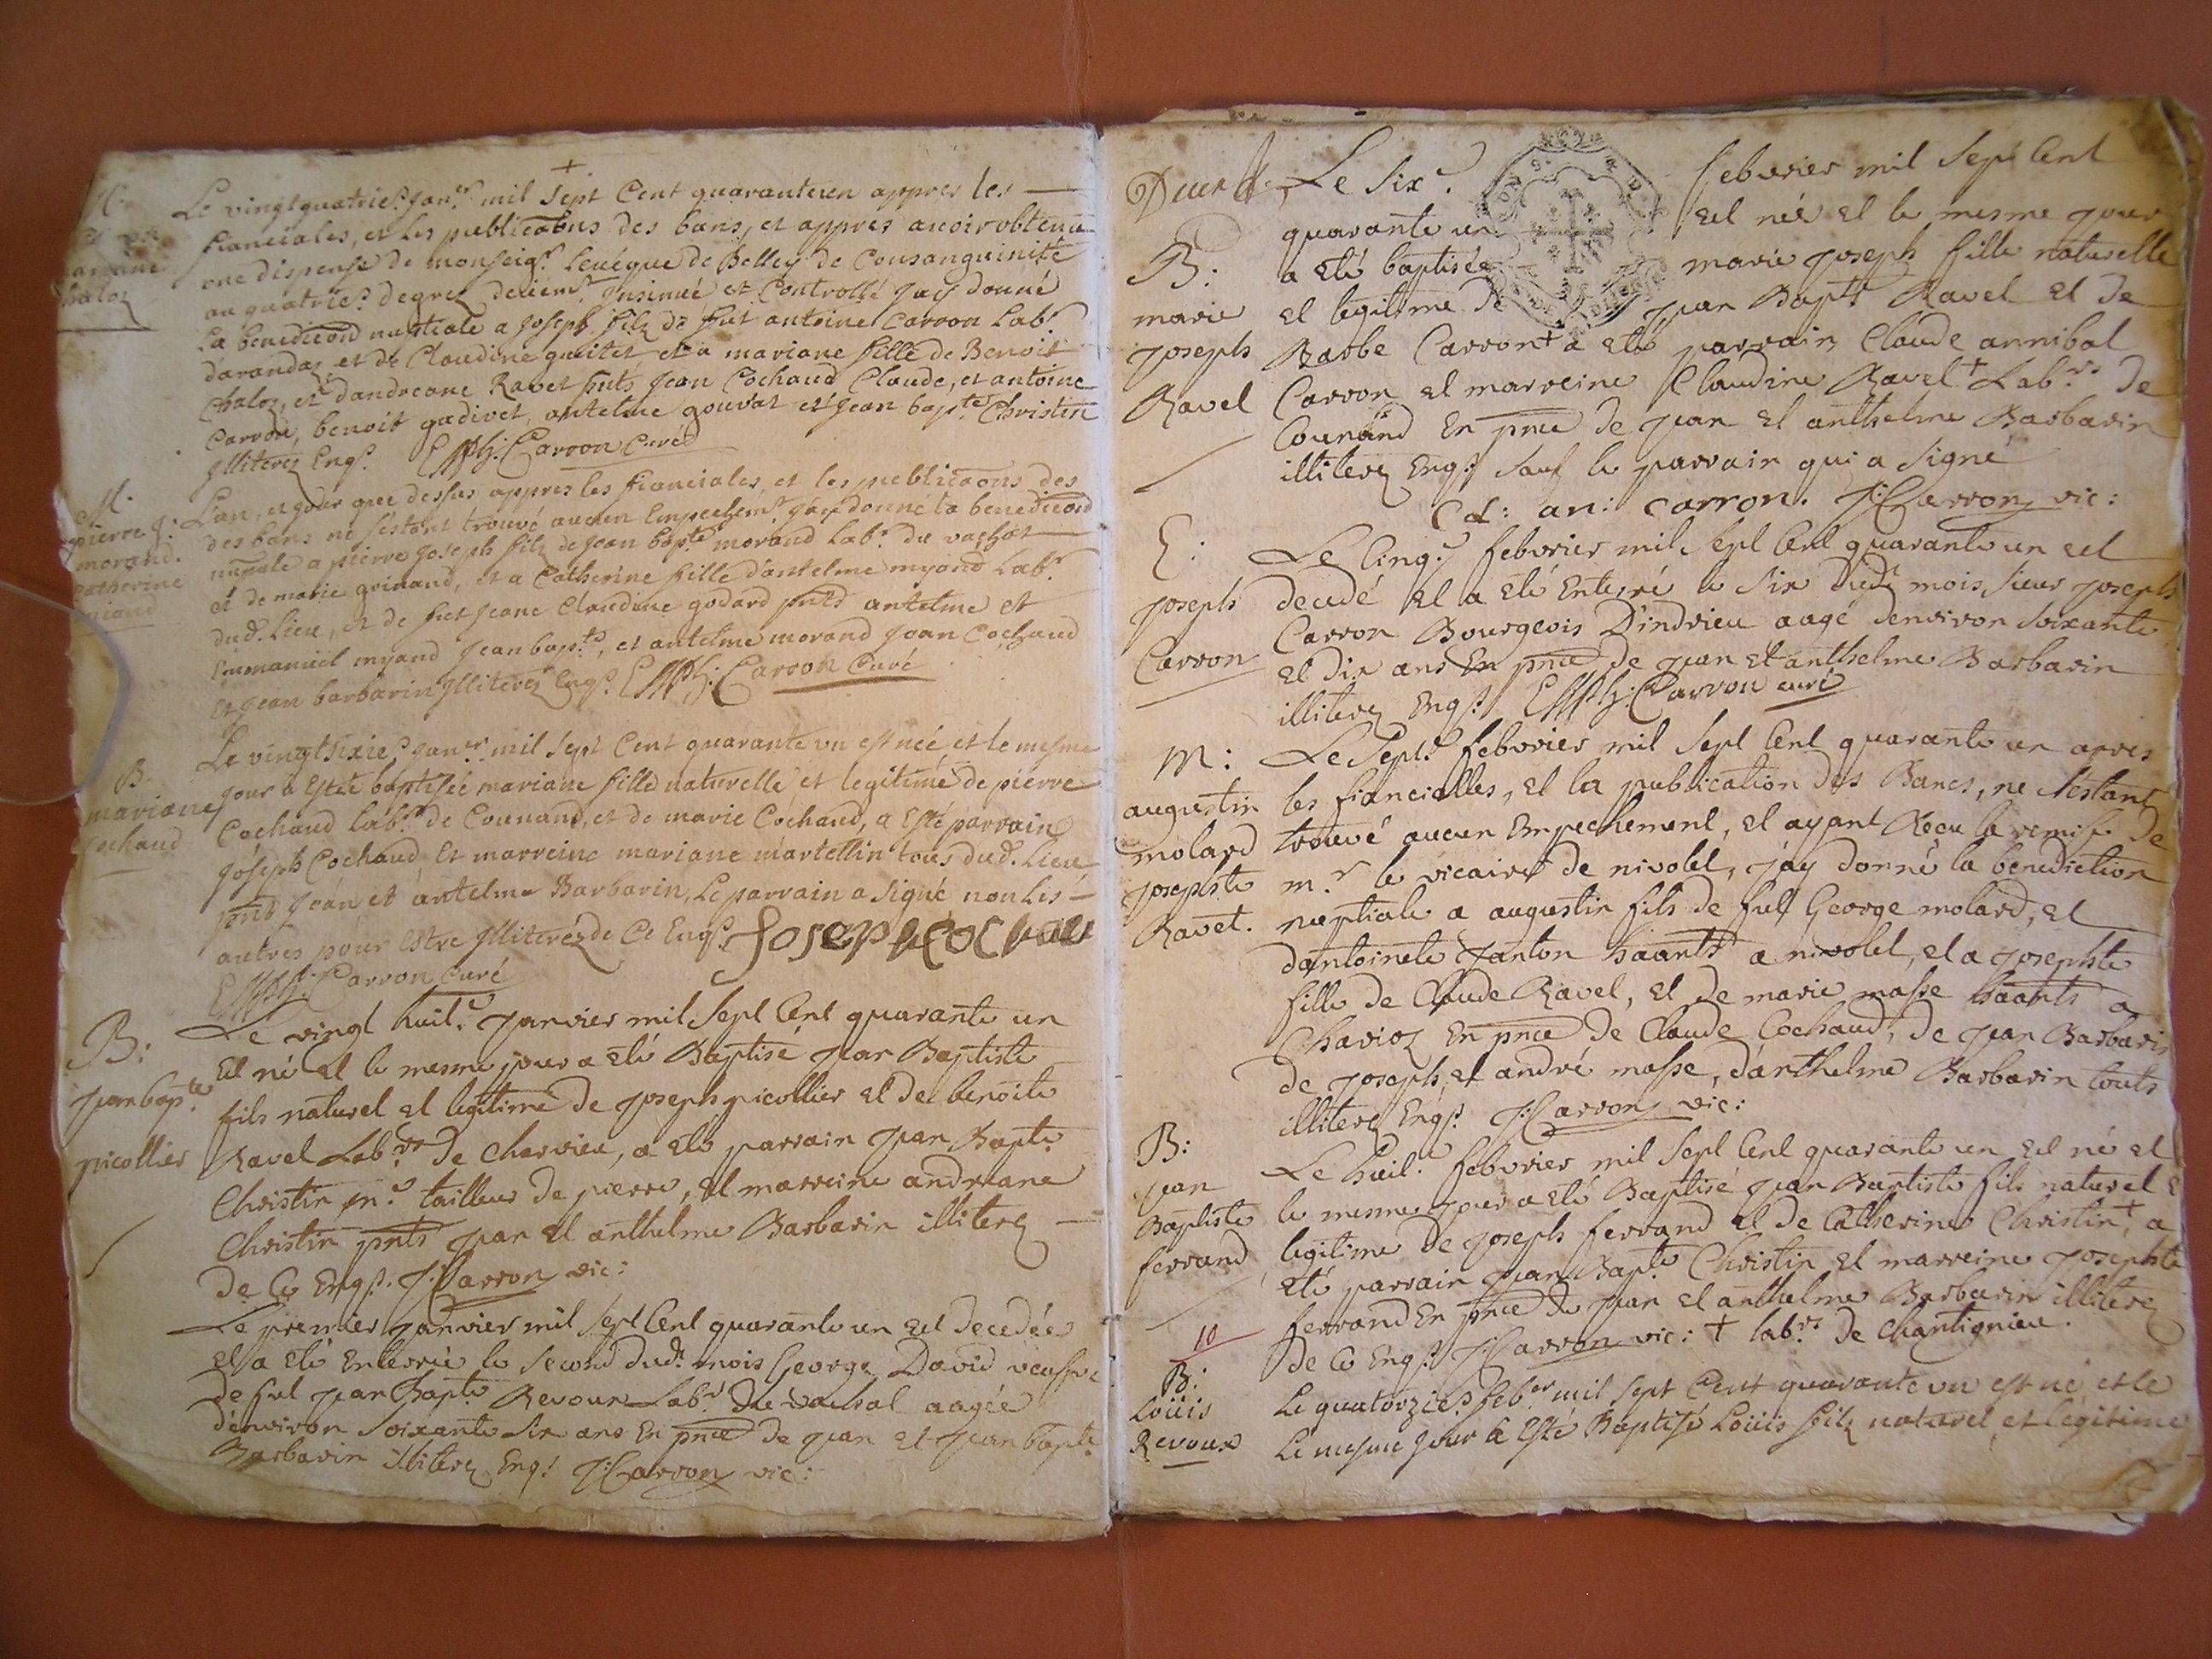 +
M.
Le vingtquatrie.e Jan.er mil sept Cent quaranteun appres les
fianciales, et les publicaôns des bans, et appres avoir obtenu
une dispense de monseig.r Levêque de Belley de Consanguinité
au quatrie.e degrez deuem.t Insinué et Controllé Jay donné
La benedicôn nuptiale a Joseph filz de fut antoine Carron Lab.r
darandaz, et de Claudine et a mariane fille de Benoit
Chaloz, et dandreane Ravet pnts Jean Cochaud Claude, et antoine
Carron, benoit antelme gouvat et Jean bap.te Christin
Illiterez Enq.s Carron Curé
M.
pierre J.
morand.
Catherine
miand
L'an, et jour que dessus appres les fianciales, et les publicaôns des
des bans ne s'estant trouvé aucun Empechem.t Jay donné la benedicôn
nuptale a pierre Joseph filz de Jean bap.te morand Lab.r du vachat
et de marie guinand, et a Catherine fille d'antelme myand Lab.r
dud. Lieu, et de fut Jeane Claudine godard pnts antelme et
Emmanuel myand Jean bap.te, et antelme morand Jean Cochaud
Et Jean barbarin Illiterez Enq.s Carron Curé
B.
mariane
Cochaud
Le vingt sixie.e Jan.er mil sept Cent quarante un est née et le mesme
jour a Esté baptisée mariane fille naturelle et legitime de pierre
Cochaud Lab.r de Counand, et de marie Cochaud, a Esté parrain
Joseph Cochaud, Et marreine mariane martellin tous dud. Lieu
pnts Jean et antelme Barbarin, Le parrain a signé non les
autres pour estre Illiterez de Ce Enq.s Joseph Cochau
Carron Curé
B:
Jean bap.te
picollier
Le vingt huit.e Janvier mil Sept Cent quarante un
Est né Et le mesme jour a Eté Baptisé Jean Baptiste
fils naturel et legitime de Joseph picollier et de benoite
Ravet Lab.rs de Charvieu, a eté parrain Jean Bapt.e
Christin m.e tailleur de pierre, et marreine andreane
Christin pnts Jean et anthelme Barbarin illiterez
de Ce Enq.s J: Carron vic:
Le premier Janvier mil Sept Cent quarante un est decedée
et a eté Enterrée le second dud.t mois George David veufve
de fut Jean Bapt.e Revoux Lab.r du vachat aagée
d'environ soixante six ans En pnce de Jean et Jean bapt.e
Barbarin illiterez Enq.s J: Carron vic:
Le Six.e febvrier mil Sept Cent
quarante un est née et le mesme jour
B:
marie
Joseph
Ravet
a eté baptisée marie Joseph fille naturelle
et legitime de Jean Bapt.e Ravet et de
Barbe Carron + a eté parrain Claude annibal
Carron et marreine Claudine Ravet + Lab.rs de
Counand En pnce de Jean et anthelme Barbarin
illiterez Enq.s sauf le parrain qui a signé
Cl: an: Carron. J: Carron vic:
E:
Joseph
Carron
Le Cinq.e febvrier mil Sept Cent quarante un est
decedé et a eté Enterré le six dud.t mois, Sieur Joseph
Carron Bourgeois D'indrieu aagé denviron soixante
et dix ans En pnce de Jean et anthelme Barbarin
illiterez Enq.s Carron curé
M:
augustin
molard
Josephte
Ravet.
Le Sept.e febvrier mil Sept Cent quarante un apres
les fiancialles, et la publication des Bancs, ne s'estant
trouvé aucun Empechement, et ayant Receu la remise de
m.r le vicaire de nivolet, jay donné la benediction
nuptiale a augustin fils de fut George molard, et
dantoinete Janton haants a nivolet, et a Josephte
fille de Claude Ravet, et de marie masse haants a
Chavioz En pnce de Claude Cochaud, de Jean Barbarin
de Joseph, et andré masse, d'anthelme Barbarin touts
illiterez Enq.s J: Carron vic:
B:
Jean
Baptiste
ferrand
Le huit.e febvrier mil Sept Cent quarante un est né et
le mesme jour a eté Baptisé Jean Baptiste fils naturel et
legitime de Joseph ferrand et de Catherine Christin +, a
eté parrain Jean Bapt.e Christin et marreine Josephte
ferrand En pnce de Jean et anthelme Barbarin illiterez
de Ce Enq.s J: Carron vic: + lab.rs de Chantignieu.
10
B:
Loüis
Revoux
Le quatorzie.e feb.er mil sept Cent quarante un est né et le
Le mesme jour a Esté Baptisé Loüis filz naturel, et legitime